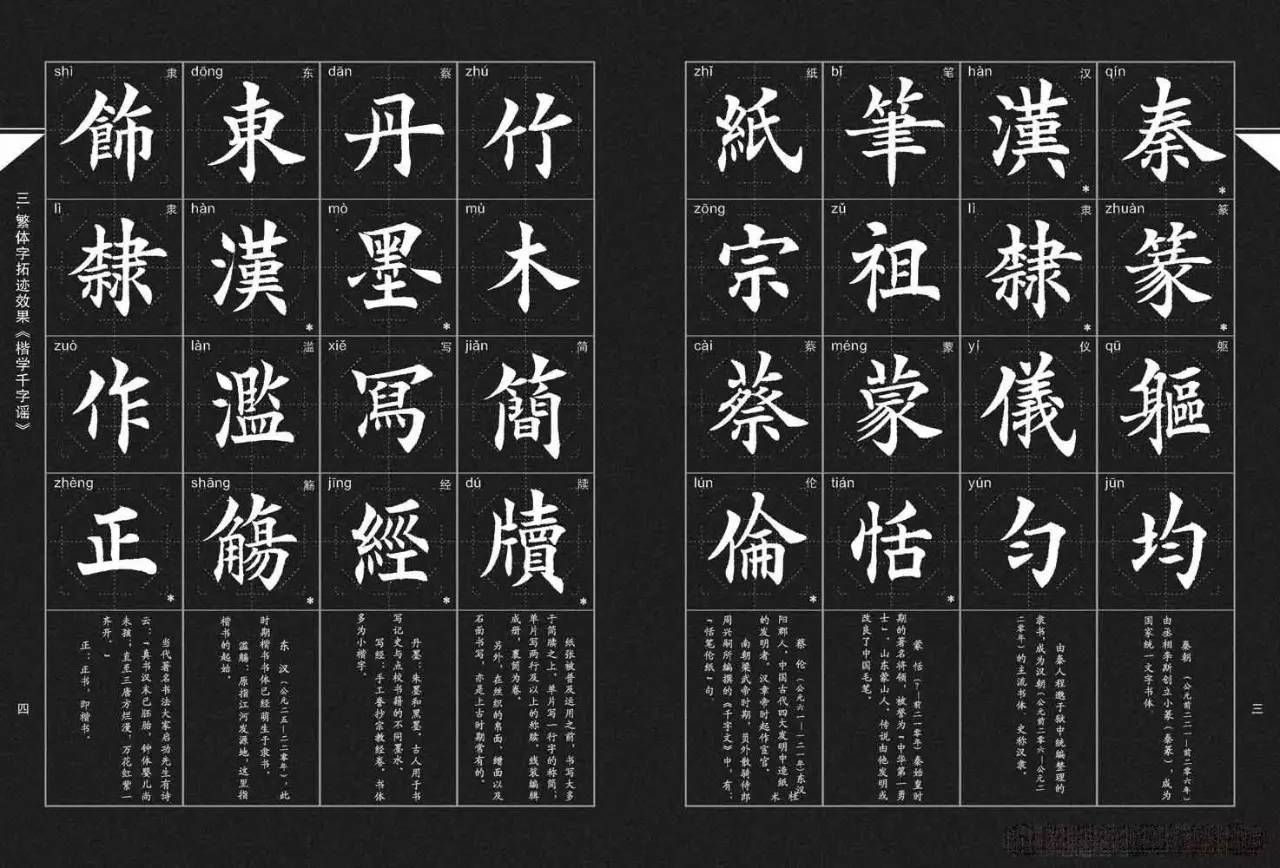 qín
秦 *
zhuàn 篆
篆 *
qū 躯
軀
jūn
均
秦朝（公元前二二一—前二零六年）
由丞相李斯创立小篆（秦篆），成为
国家统一文字书体。
hàn 汉
漢 *
lì 隶
隸 *
yí 仪
儀
yún
匀
由秦人程邈于狱中统编整理的
隶书，成为汉朝（公元前二零六—公元二
二零年）的主流书体，史称汉隶。
bǐ 笔
筆
zǔ
祖
méng 蒙
蒙
tián
恬 *
蒙恬（？—前二一零年）秦始皇时
期的著名将领，被誉为“中华第一勇
士”。山东蒙山人，传说由他发明或
改良了中国毛笔。
zhǐ 纸
紙
zōng
宗
cài 蔡
蔡
lún 伦
倫 *
蔡伦（公元六一—一二一年）东汉桂
阳郡人，中国古代四大发明中造纸术
的发明者。汉章帝时起作宦官。
南朝梁武帝时期，员外散骑侍郎
周兴嗣所编撰的《千字文》中，有：
“恬笔伦纸”句。
三
zhú
竹
mù
木
jiǎn 简
簡
dú 牍
牘 *
纸张被普及运用之前，书写大多
于简牍之上。单片写一行字的称简；
单片写两行及以上的称牍，线装编辑
成册，裹简为卷。
另外，在丝织的帛面、缯面以及
石面书写，亦是上古时期常有的。
dān 蔡
丹
mò
墨 *
xiě 写
寫
jīng 经
經 *
丹墨：朱墨和黑墨。古人用于书
写记史与点校书籍的不同墨水。
写经：手工誊抄宗教经卷。书体
多为小楷字。
dōng 东
東
hàn
漢 *
làn 滥
濫
shāng 觞
觴 *
东汉（公元二五—二二零年），此
时期楷书书体已经萌生于隶书。
滥觞：原指江河发源地，这里指
楷书的起始。
shì 隶
飾
lì 隶
隸
zuò
作
zhèng
正 *
当代著名书法大家启功先生有诗
云：“真书汉末已胚胎，钟体婴儿尚
未孩；直至三唐方烂漫，万花红紫一
齐开。”
正：正书，即楷书。
三.繁体字拓迹效果《楷学千字谣》
四